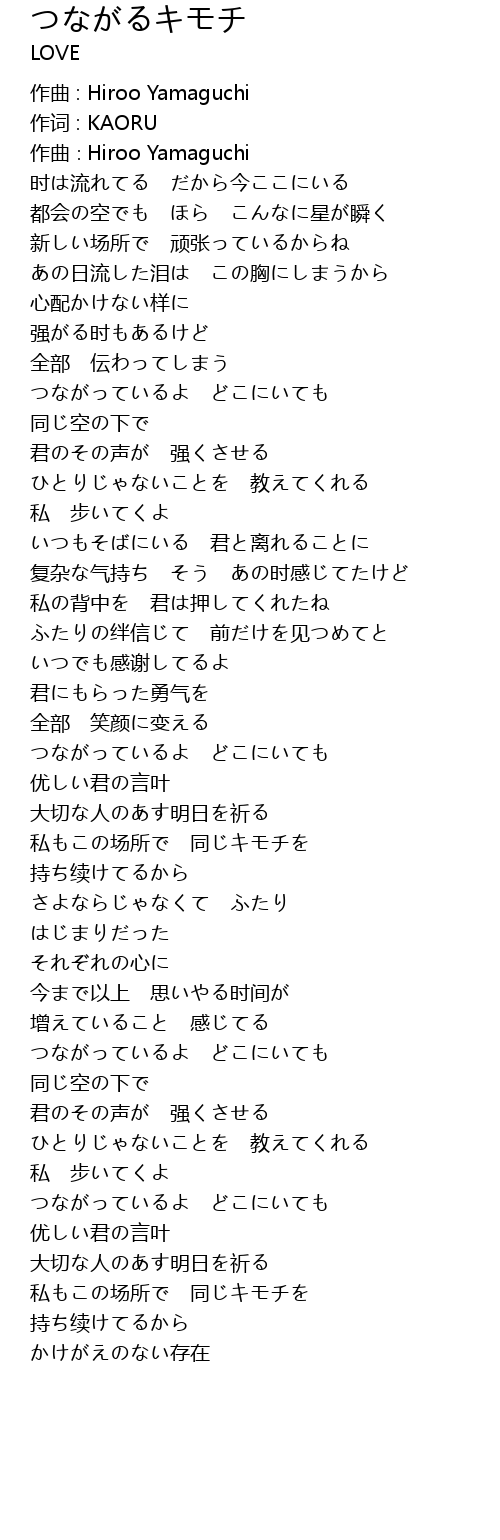 つながるキモチ
LOVE
作曲 : Hiroo Yamaguchi
作词 : KAORU
作曲 : Hiroo Yamaguchi
时は流れてる　だから今ここにいる
都会の空でも　ほら　こんなに星が瞬く
新しい场所で　顽张っているからね
あの日流した泪は　この胸にしまうから
心配かけない样に
强がる时もあるけど
全部　伝わってしまう
つながっているよ　どこにいても
同じ空の下で
君のその声が　强くさせる
ひとりじゃないことを　教えてくれる
私　歩いてくよ
いつもそばにいる　君と离れることに
复杂な气持ち　そう　あの时感じてたけど
私の背中を　君は押してくれたね
ふたりの绊信じて　前だけを见つめてと
いつでも感谢してるよ
君にもらった勇气を
全部　笑颜に变える
つながっているよ　どこにいても
优しい君の言叶
大切な人のあす明日を祈る
私もこの场所で　同じキモチを
持ち续けてるから
さよならじゃなくて　ふたり
はじまりだった
それぞれの心に
今まで以上　思いやる时间が
增えていること　感じてる
つながっているよ　どこにいても
同じ空の下で
君のその声が　强くさせる
ひとりじゃないことを　教えてくれる
私　歩いてくよ
つながっているよ　どこにいても
优しい君の言叶
大切な人のあす明日を祈る
私もこの场所で　同じキモチを
持ち续けてるから
かけがえのない存在